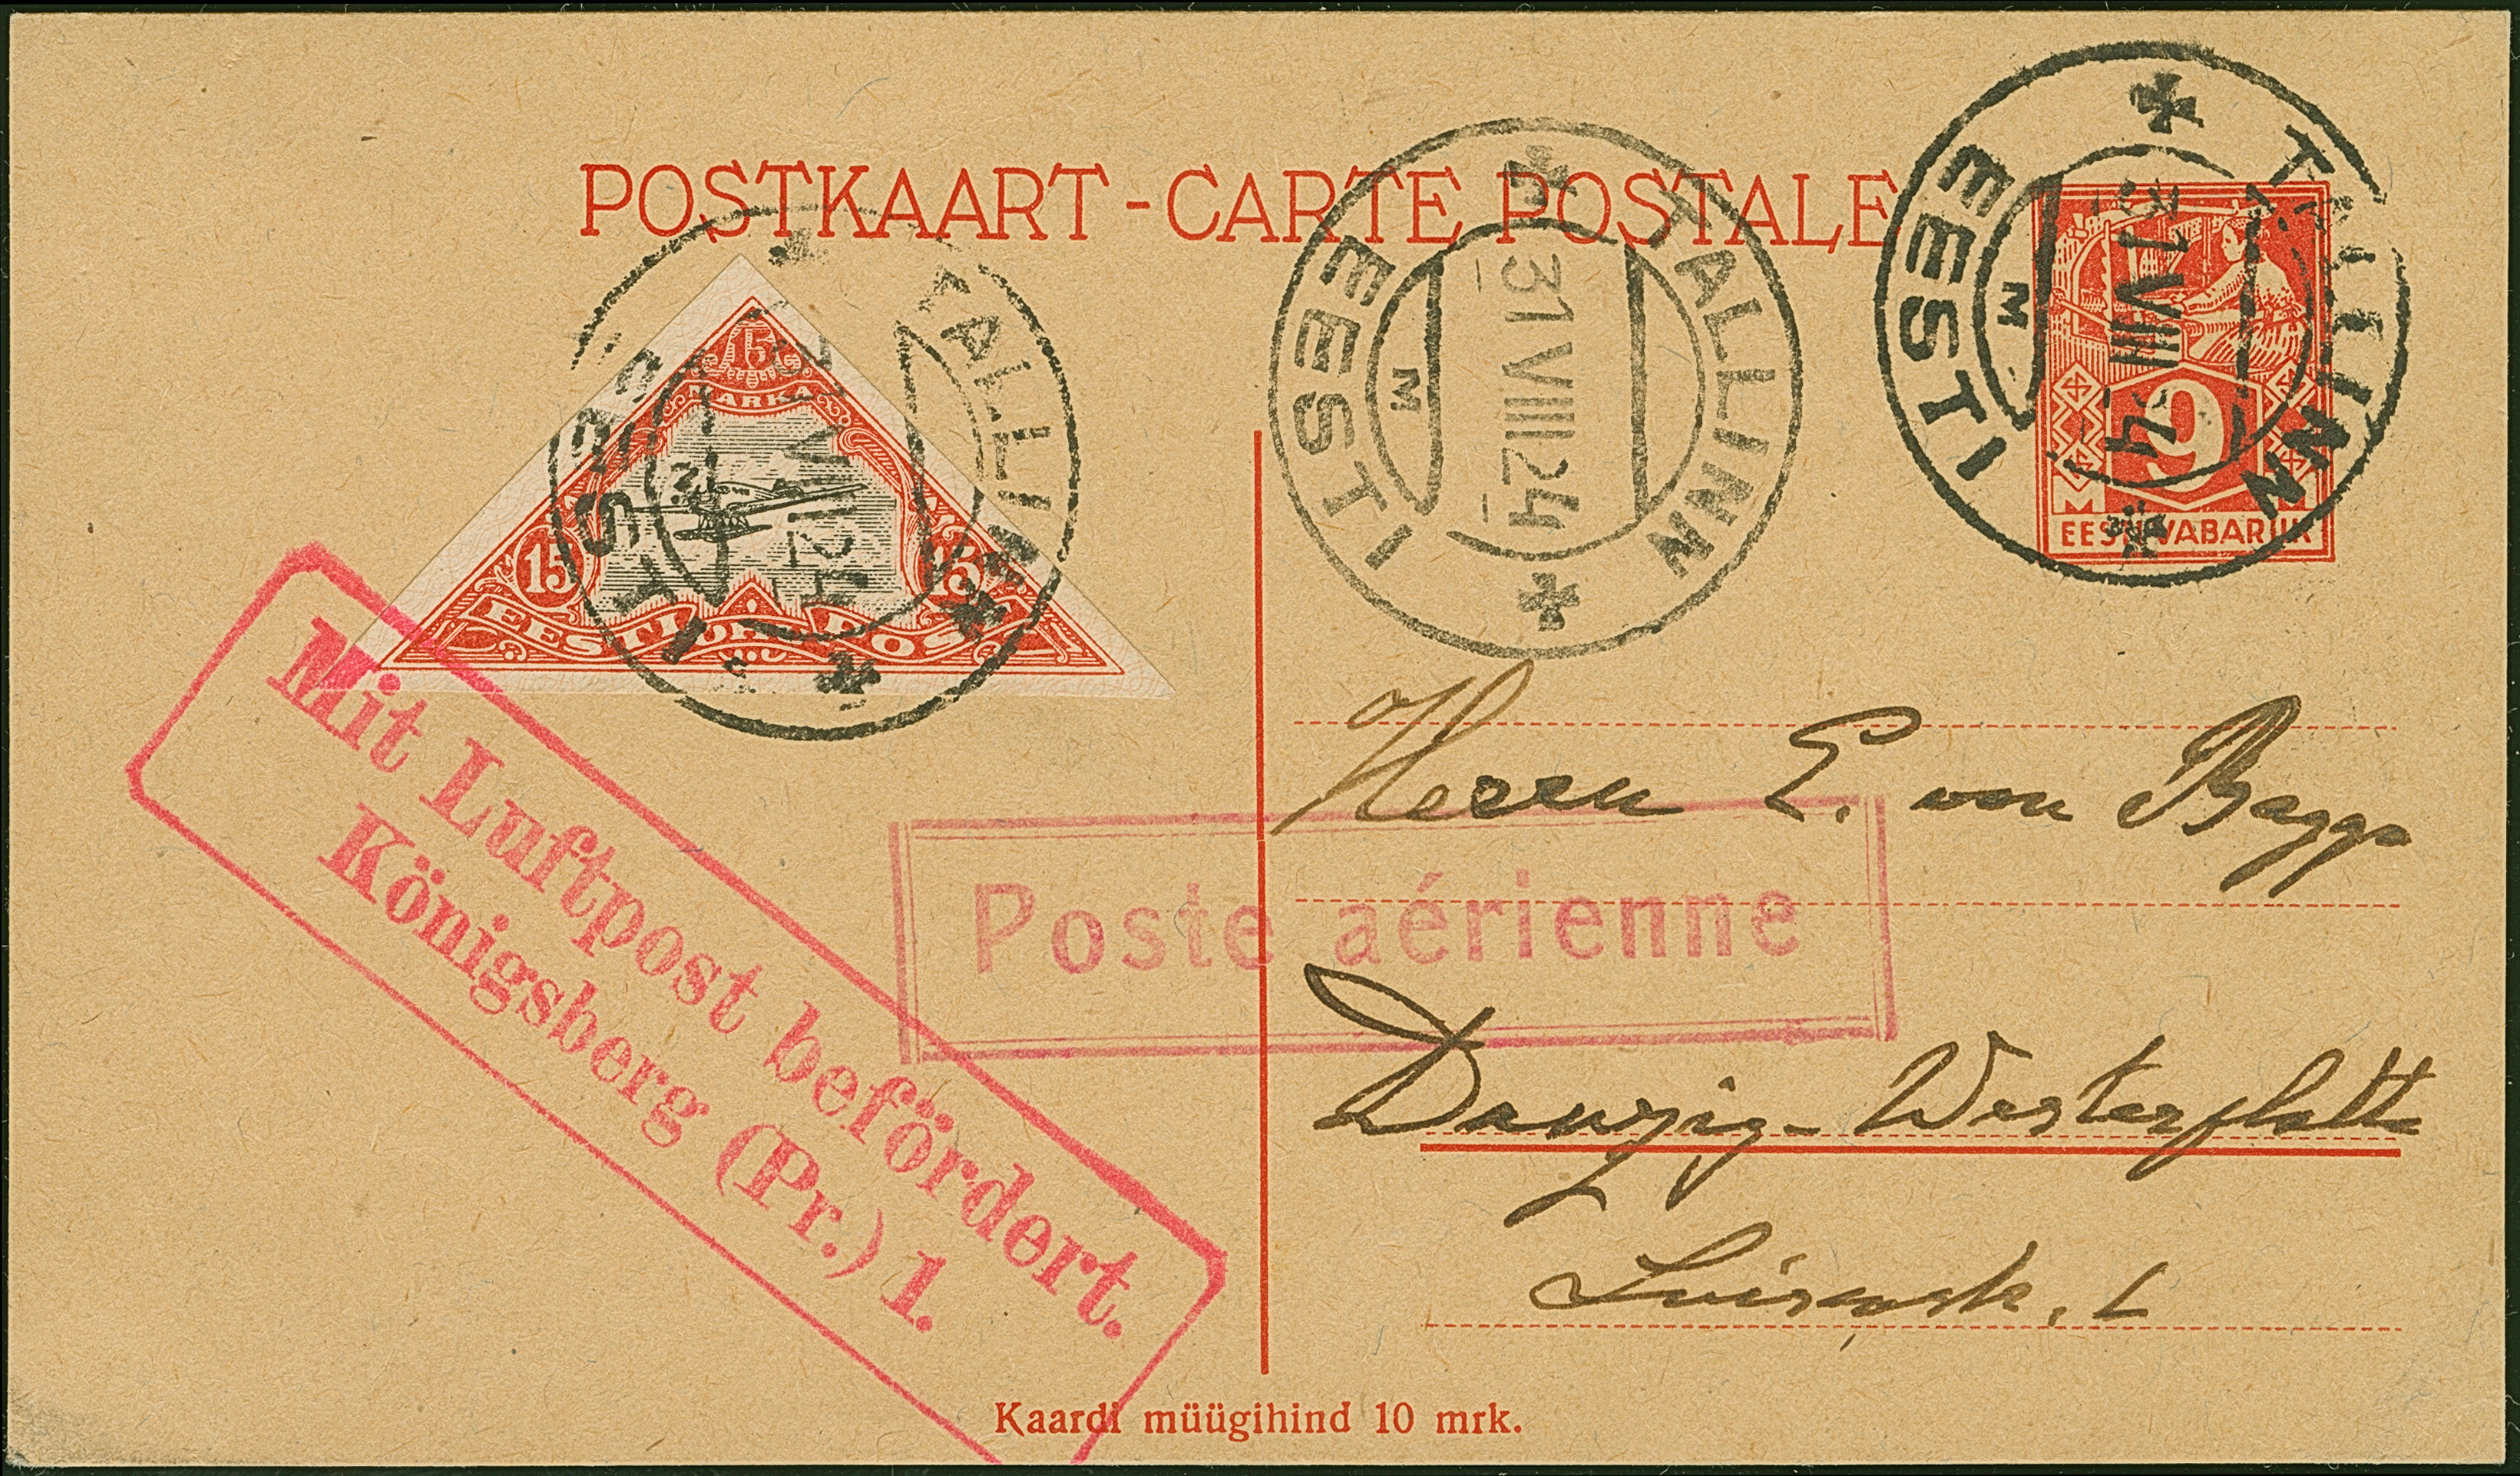 POSTKAART - CARTE POSTALE
TALLINN
31 VIII 24
M
EESTI
TALLINN
31 VIII 24
M
EESTI
9
M M
EESTI VABARIIK
TALLINN
31 VIII 24
M
EESTI
15
MARKA
15 15
EESTI POST
Herrn E. von
Poste aérienne
Danzig-Westerplatte
Mit Luftpost befördert.
Königsberg (Pr.) 1.
Kaardi müügihind 10 mrk.